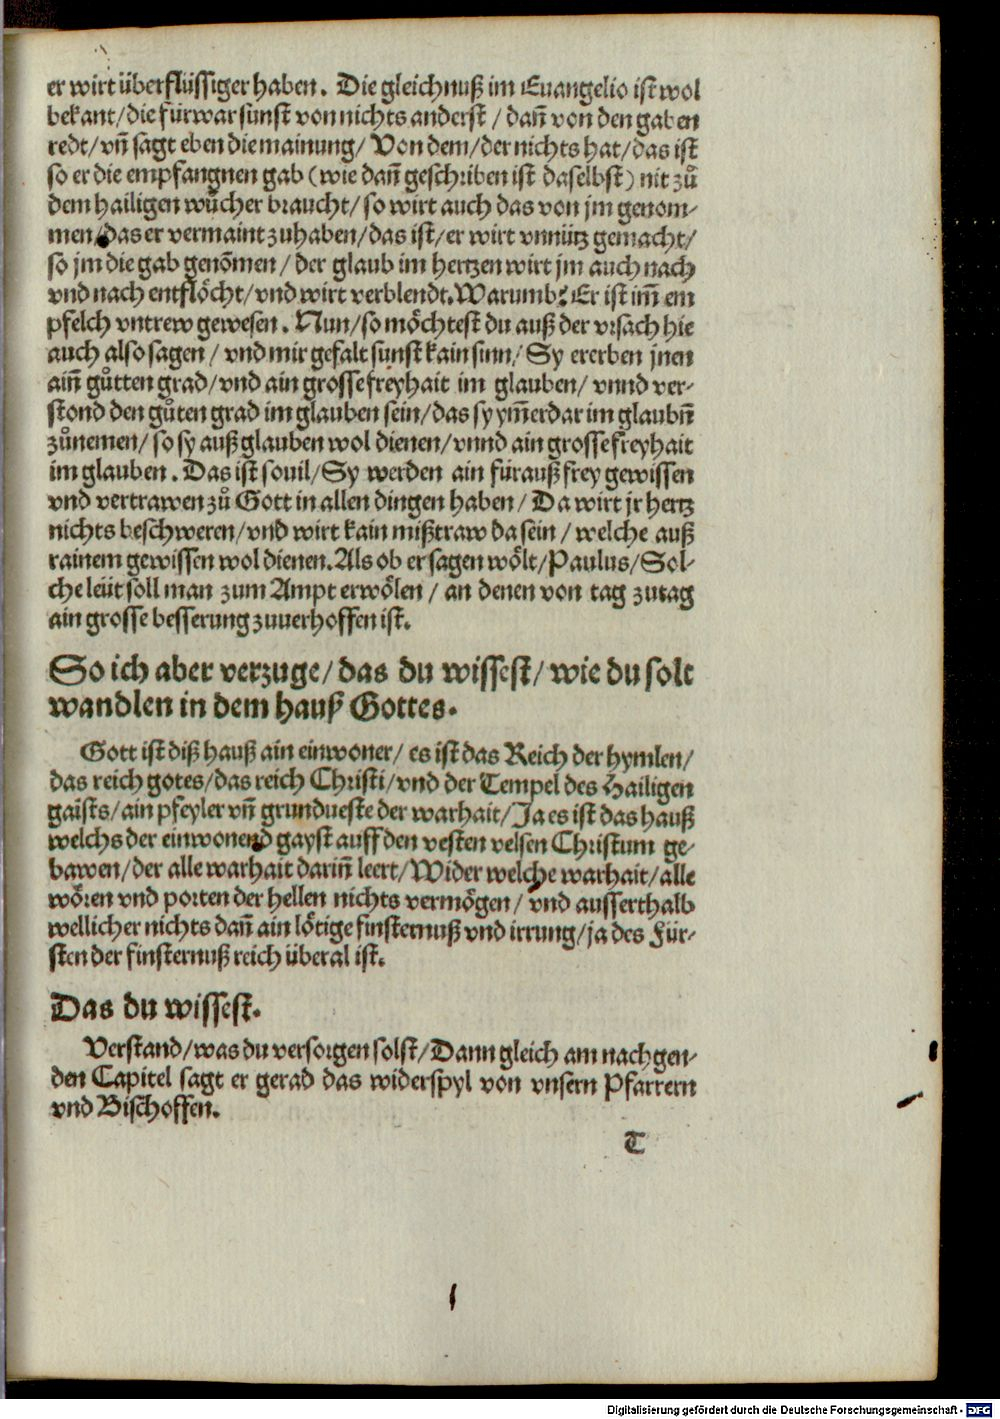 er wirt überflüssiger haben. Die gleichnuß im Euangelio ist wol
bekant/die fürwar sunst von nichts anderst / dañ von den gaben
redt/vñ sagt eben die mainung/ Von dem/der nichts hat/das ist
so er die empfangnen gab (wie dañ geschriben ist daselbst) nit zů
dem hailigen wůcher braucht/so wirt auch das von jm genom-
men/das er vermaint zuhaben/das ist/er wirt vnnütz gemacht/
so jm die gab genõmen / der glaub im hertzen wirt jm auch nach
vnd nach entflöcht/vnd wirt verblendt. Warumb? Er ist im̃ em
pfelch vntrew gewesen. Nun/so möchtest du auß der vrsach hie
auch also sagen / vnd mir gefalt sunst kain sinn/ Sy ererben jnen
aiñ gůtten grad/vnd ain grosse freyhait im glauben/ vnnd ver-
stond den gůten grad im glauben sein/das sy ym̃erdar im glaubñ
zůnemen/so sy auß glauben wol dienen/vnnd ain grosse freyhait
im glauben. Das ist souil/Sy werden ain fürauß frey gewissen
vnd vertrawen zů Gott in allen dingen haben/ Da wirt jr hertz
nichts beschweren/vnd wirt kain mißtraw da sein / welche auß
rainem gewissen wol dienen. Als ob er sagen wölt/Paulus/Sol-
che leüt soll man zum Ampt erwölen / an denen von tag zutag
ain grosse besserung zuuerhoffen ist.
So ich aber verzuge/das du wissest/wie du solt
wandlen in dem hauß Gottes.
Gott ist diß hauß ain einwoner/es ist das Reich der hymlen/
das reich gotes/das reich Christi/vnd der Tempel des Hailigen
gaists/ain pfeyler vñ grundueste der warhait/Ja es ist das hauß
welchs der einwonend gayst auff den vesten velsen Christum ge-
bawen/der alle warhait dariñ leert/Wider welche warhait/alle
wören vnd porten der hellen nichts vermögen/ vnd ausserthalb
wellicher nichts dañ ain lötige finsternuß vnd irrung/ja des Für-
sten der finsternuß reich überal ist.
Das du wissest.
Verstand/was du versorgen solst/Dann gleich am nachgen-
den Capitel sagt er gerad das widerspyl von vnsern Pfarrern
vnd Bischoffen.
T
Digitalisierung gefördert durch die Deutsche Forschungsgemeinschaft - DFG